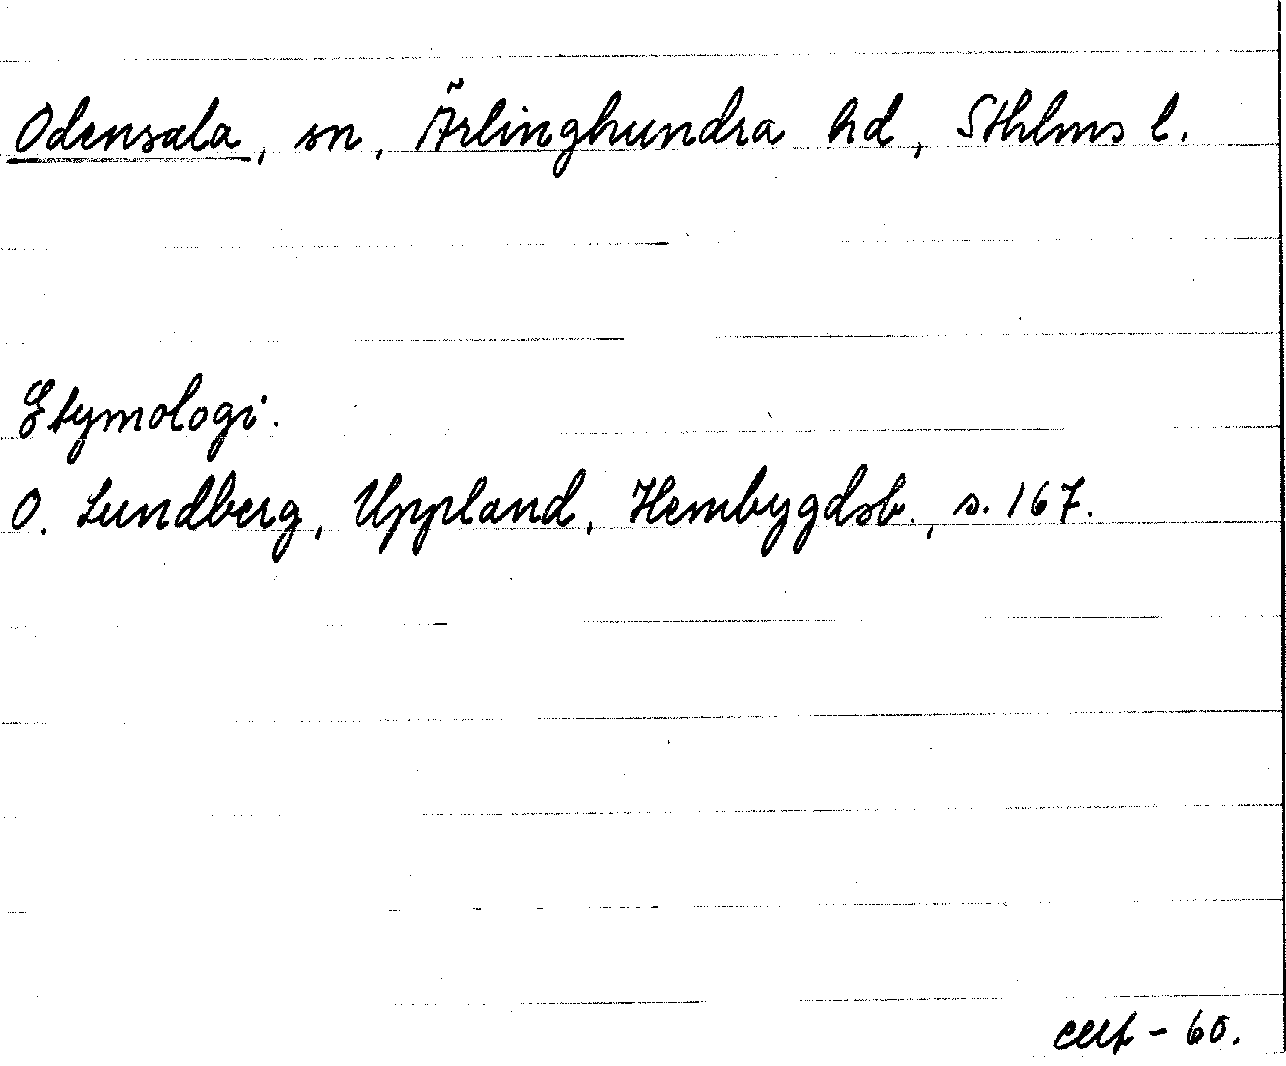 Odensala, sn, Ärlinghundra hd, Sthlms l.
Etymologi.
O. Lundberg, Uppland, Hembygdsb., s. 167.
- 60.